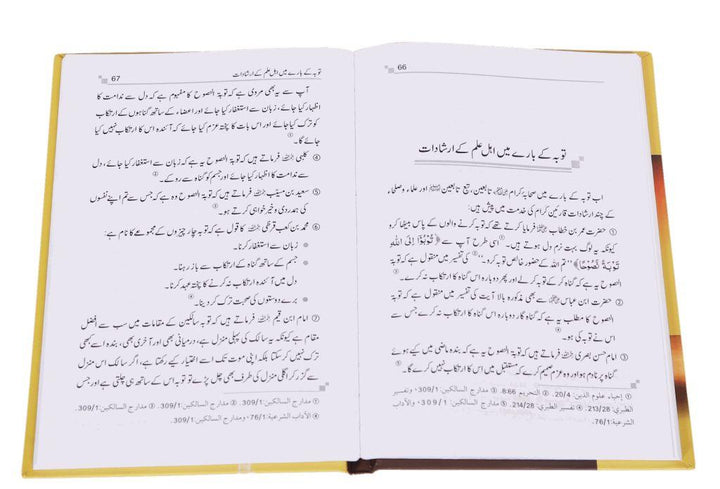 66
توبہ کے بارے میں اہل علم کے ارشادات
اب توبہ کے بارے میں صحابۂ کرام رضی اللہ عنہم، تابعین، تبع تابعین رحمہم اللہ اور علماء و صلحاء
کے چند ارشادات قارئین کرام کی خدمت میں پیش ہیں:
① حضرت عمر بن خطاب رضی اللہ عنہ فرمایا کرتے تھے کہ توبہ کرنے والوں کے پاس بیٹھا کرو
کیونکہ یہ لوگ بہت نرم دل ہوتے ہیں۔ ① اسی طرح آپ سے ﴿تُوْبُوْٓا اِلَى اللّٰهِ
تَوْبَةً نَّصُوْحًا﴾ ”تم اللہ کے حضور خالص توبہ کرو۔“ ② کی تفسیر میں منقول ہے کہ توبۃ
النصوح یہ ہے کہ بندہ گناہ کر کے توبہ کر لے اور پھر دوبارہ اس گناہ کا ارتکاب نہ کرے۔ ③
② حضرت ابن عباس رضی اللہ عنہما سے بھی مذکورہ بالا آیت کی تفسیر میں منقول ہے کہ توبۃ
النصوح کا مطلب یہ ہے کہ گناہ گار دوبارہ اس گناہ کا ارتکاب نہ کرے جس سے
اس نے توبہ کی ہو۔ ④
③ امام حسن بصری رحمہ اللہ فرماتے ہیں کہ توبۃ النصوح یہ ہے کہ بندہ ماضی میں کیے ہوئے
گناہ پر نادم ہو اور وہ عزم صمیم کرے کہ مستقبل میں اس کا ارتکاب نہیں کرے گا۔ ⑤
① إحياء علوم الدين: 20/4. ② التحريم 8:66. ③ مدارج السالكين: 309/1، وتفسير
الطبري: 213/28. ④ تفسير الطبري: 214/28. ⑤ مدارج السالكين: 309/1، والآداب
الشرعية: 76/1.
توبہ کے بارے میں اہل علم کے ارشادات
67
آپ سے یہ بھی مروی ہے کہ توبۃ النصوح کا مفہوم ہے کہ دل سے ندامت کا
اظہار کیا جائے، زبان سے استغفار کیا جائے اور اعضاء کے ساتھ گناہوں کے ارتکاب
کو ترک کیا جائے اور اس بات کا پختہ عزم کیا جائے کہ آئندہ اس کا ارتکاب نہیں کیا
جائے گا۔ ①
④ کلبی رحمہ اللہ فرماتے ہیں کہ توبۃ النصوح یہ ہے کہ زبان سے استغفار کیا جائے، دل
سے ندامت کا اظہار کیا جائے اور جسم کو گناہ سے روکے۔ ②
⑤ سعید بن مسیب رحمہ اللہ فرماتے ہیں کہ توبۃ النصوح وہ ہے کہ جس سے تم اپنے نفسوں
کی ہمدردی و خیر خواہی کرتے ہو۔ ③
⑥ محمد بن کعب قرظی رحمہ اللہ کا قول ہے کہ توبہ چار چیزوں کے مجموعے کا نام ہے:
زبان سے استغفار کرنا۔
جسم کے ساتھ گناہ کے ارتکاب سے باز رہنا۔
دل میں آئندہ ارتکاب نہ کرنے کا پختہ عہد کرنا۔
برے دوستوں کی صحبت ترک کر دینا۔ ④
⑦ امام ابن قیم رحمہ اللہ فرماتے ہیں کہ توبہ سالکین کے مقامات میں سب سے افضل
مقام ہے کیونکہ یہ سالک کی پہلی منزل ہے، درمیانی بھی اور آخری بھی۔ بندہ اسے کبھی
ترک نہیں کر سکتا بلکہ اپنی موت تک اسے اختیار کیے رکھتا ہے، اگر سالک اس منزل
سے گزر کر اگلی منزل کی طرف بھی چل پڑے تو توبہ اس کے ساتھ ہی چلتی ہے اور جس
① مدارج السالكين: 309/1. ② مدارج السالكين: 309/1. ③ مدارج السالكين: 309/1.
④ الآداب الشرعية: 76/1، ومدارج السالكين: 309/1.